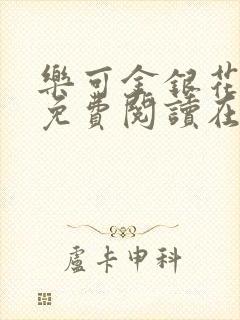 樂可金銀花
免費閱讀在
盧卡申科